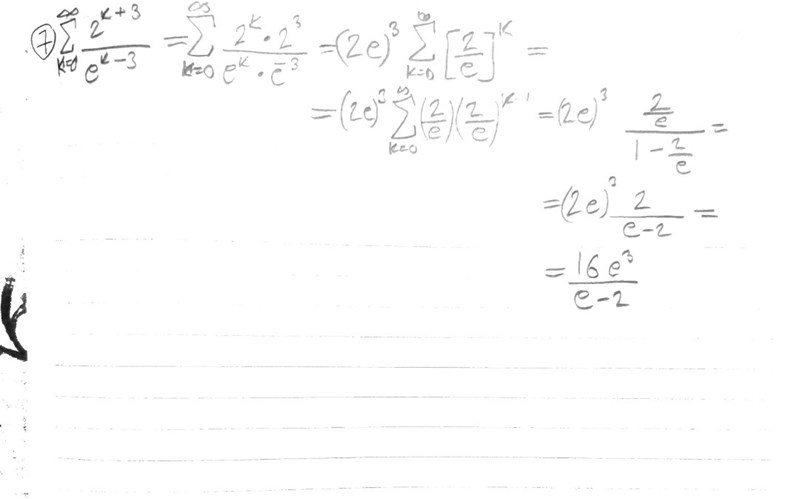 ⑦ ∑_{k=0}^{∞} 2^{k+3}/e^{k-3} = ∑_{k=0}^{∞} (2^k · 2^3)/(e^k · e^{-3}) = (2e)^3 ∑_{k=0}^{∞} [2/e]^k =
= (2e)^3 ∑_{k=0}^{∞} (2/e)(2/e)^{k-1} = (2e)^3 (2/e)/(1 - 2/e) =
= (2e)^3 2/(e-2) =
= 16e^3/(e-2)